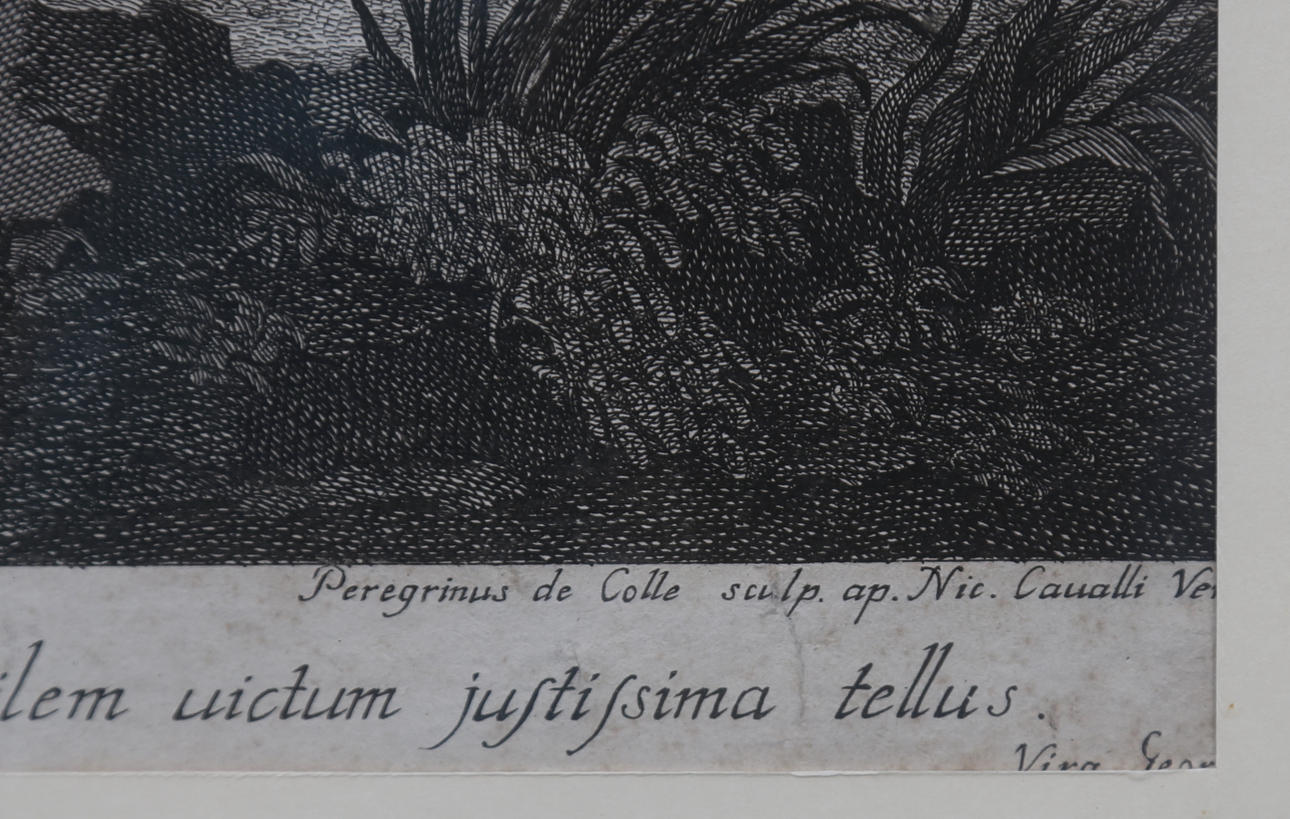 Peregrinus de Colle sculp. ap. Nic. Caualli Ve
ilem uictum juſtiſsima tellus.
Virg. Geor